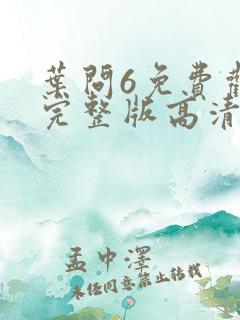 葉問6免費觀
完整版高清
孟中澤
未經同意禁止轉載